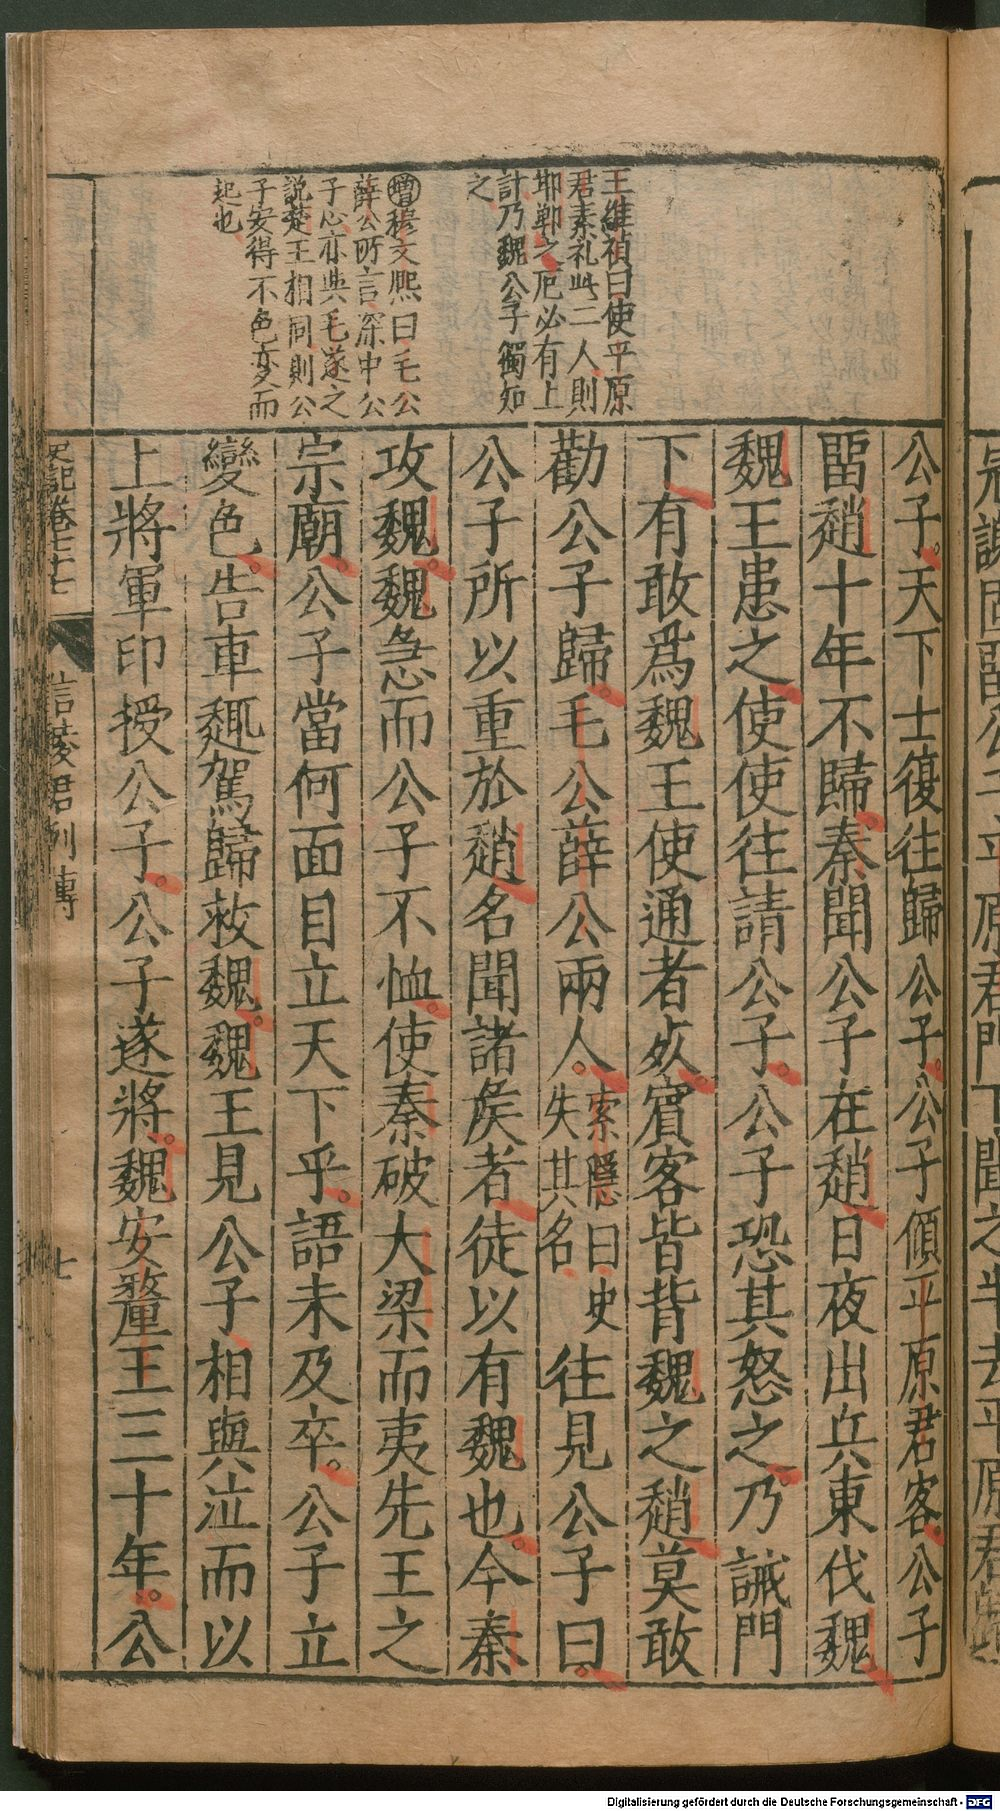 王維禎曰使平原
君素礼此二人則
邯鄲之厄必有上
計乃魏公子獨知
之
增穆文熈曰毛公
薛公所言深中公
子心亦與毛遂之
說楚王相同則公
子安得不色变而
起也
公子。天下士復往歸公子。公子傾平原君客。公子
畱趙十年不歸。秦聞公子在趙日夜出兵東伐魏
魏王患之使使往請公子。公子恐其怒之乃誡門
下有敢爲魏王使通者㱠。賓客皆背魏之趙莫敢
勸公子歸。毛公薛公兩人。索隱曰史失其名往見公子曰。
公子所以重於趙名聞諸矦者徒以有魏也。今秦
攻魏。魏急而公子不恤。使秦破大梁而夷先王之
宗廟。公子當何面目立天下乎。語未及卒。公子立
變色。告車趣駕歸救魏。魏王見公子相與泣而以
上將軍印授公子。公子遂將。魏安釐王三十年。公
史記卷七十七
信陵君列傳
七
Digitalisierung gefördert durch die Deutsche Forschungsgemeinschaft - DFG